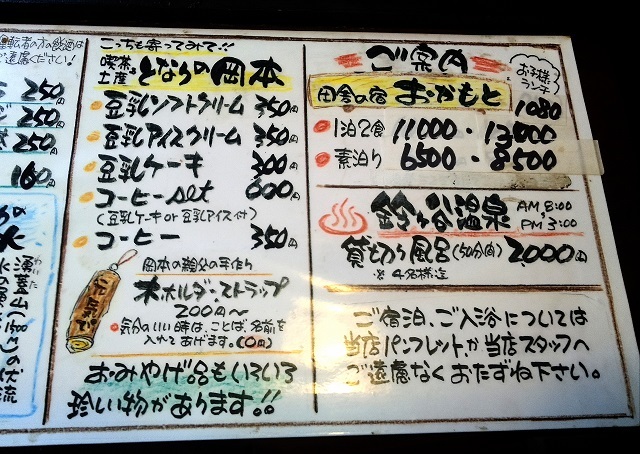 運転者の方の飲酒は
ご遠慮ください!
250円
250円
250円
160円
こっちも寄ってみて!!
喫茶&
土産 となりの岡本
豆乳ソフトクリーム 350円
豆乳アイスクリーム 350円
豆乳ケーキ 300円
コーヒーset 600円
(豆乳ケーキor豆乳アイス付)
コーヒー 350円
岡本の親父の手作り
木ホルダ・ストラップ
200円〜
気分のいい時は、ことば、名前を
入れてあげます。(0円)
おみやげ品もいろいろ
珍しい物があります!!
ご案内
お子様
ランチ
1080
田舎の宿 おかもと
1泊2食 11000・13000
素泊り 6500・8500
鈴ヶ谷温泉 AM 8:00
PM 3:00
貸切り風呂(50分間) 2,000円
※4名様迄
ご宿泊、ご入浴については
当店パンフレットか当店スタッフへ
ご遠慮なくおたずね下さい。